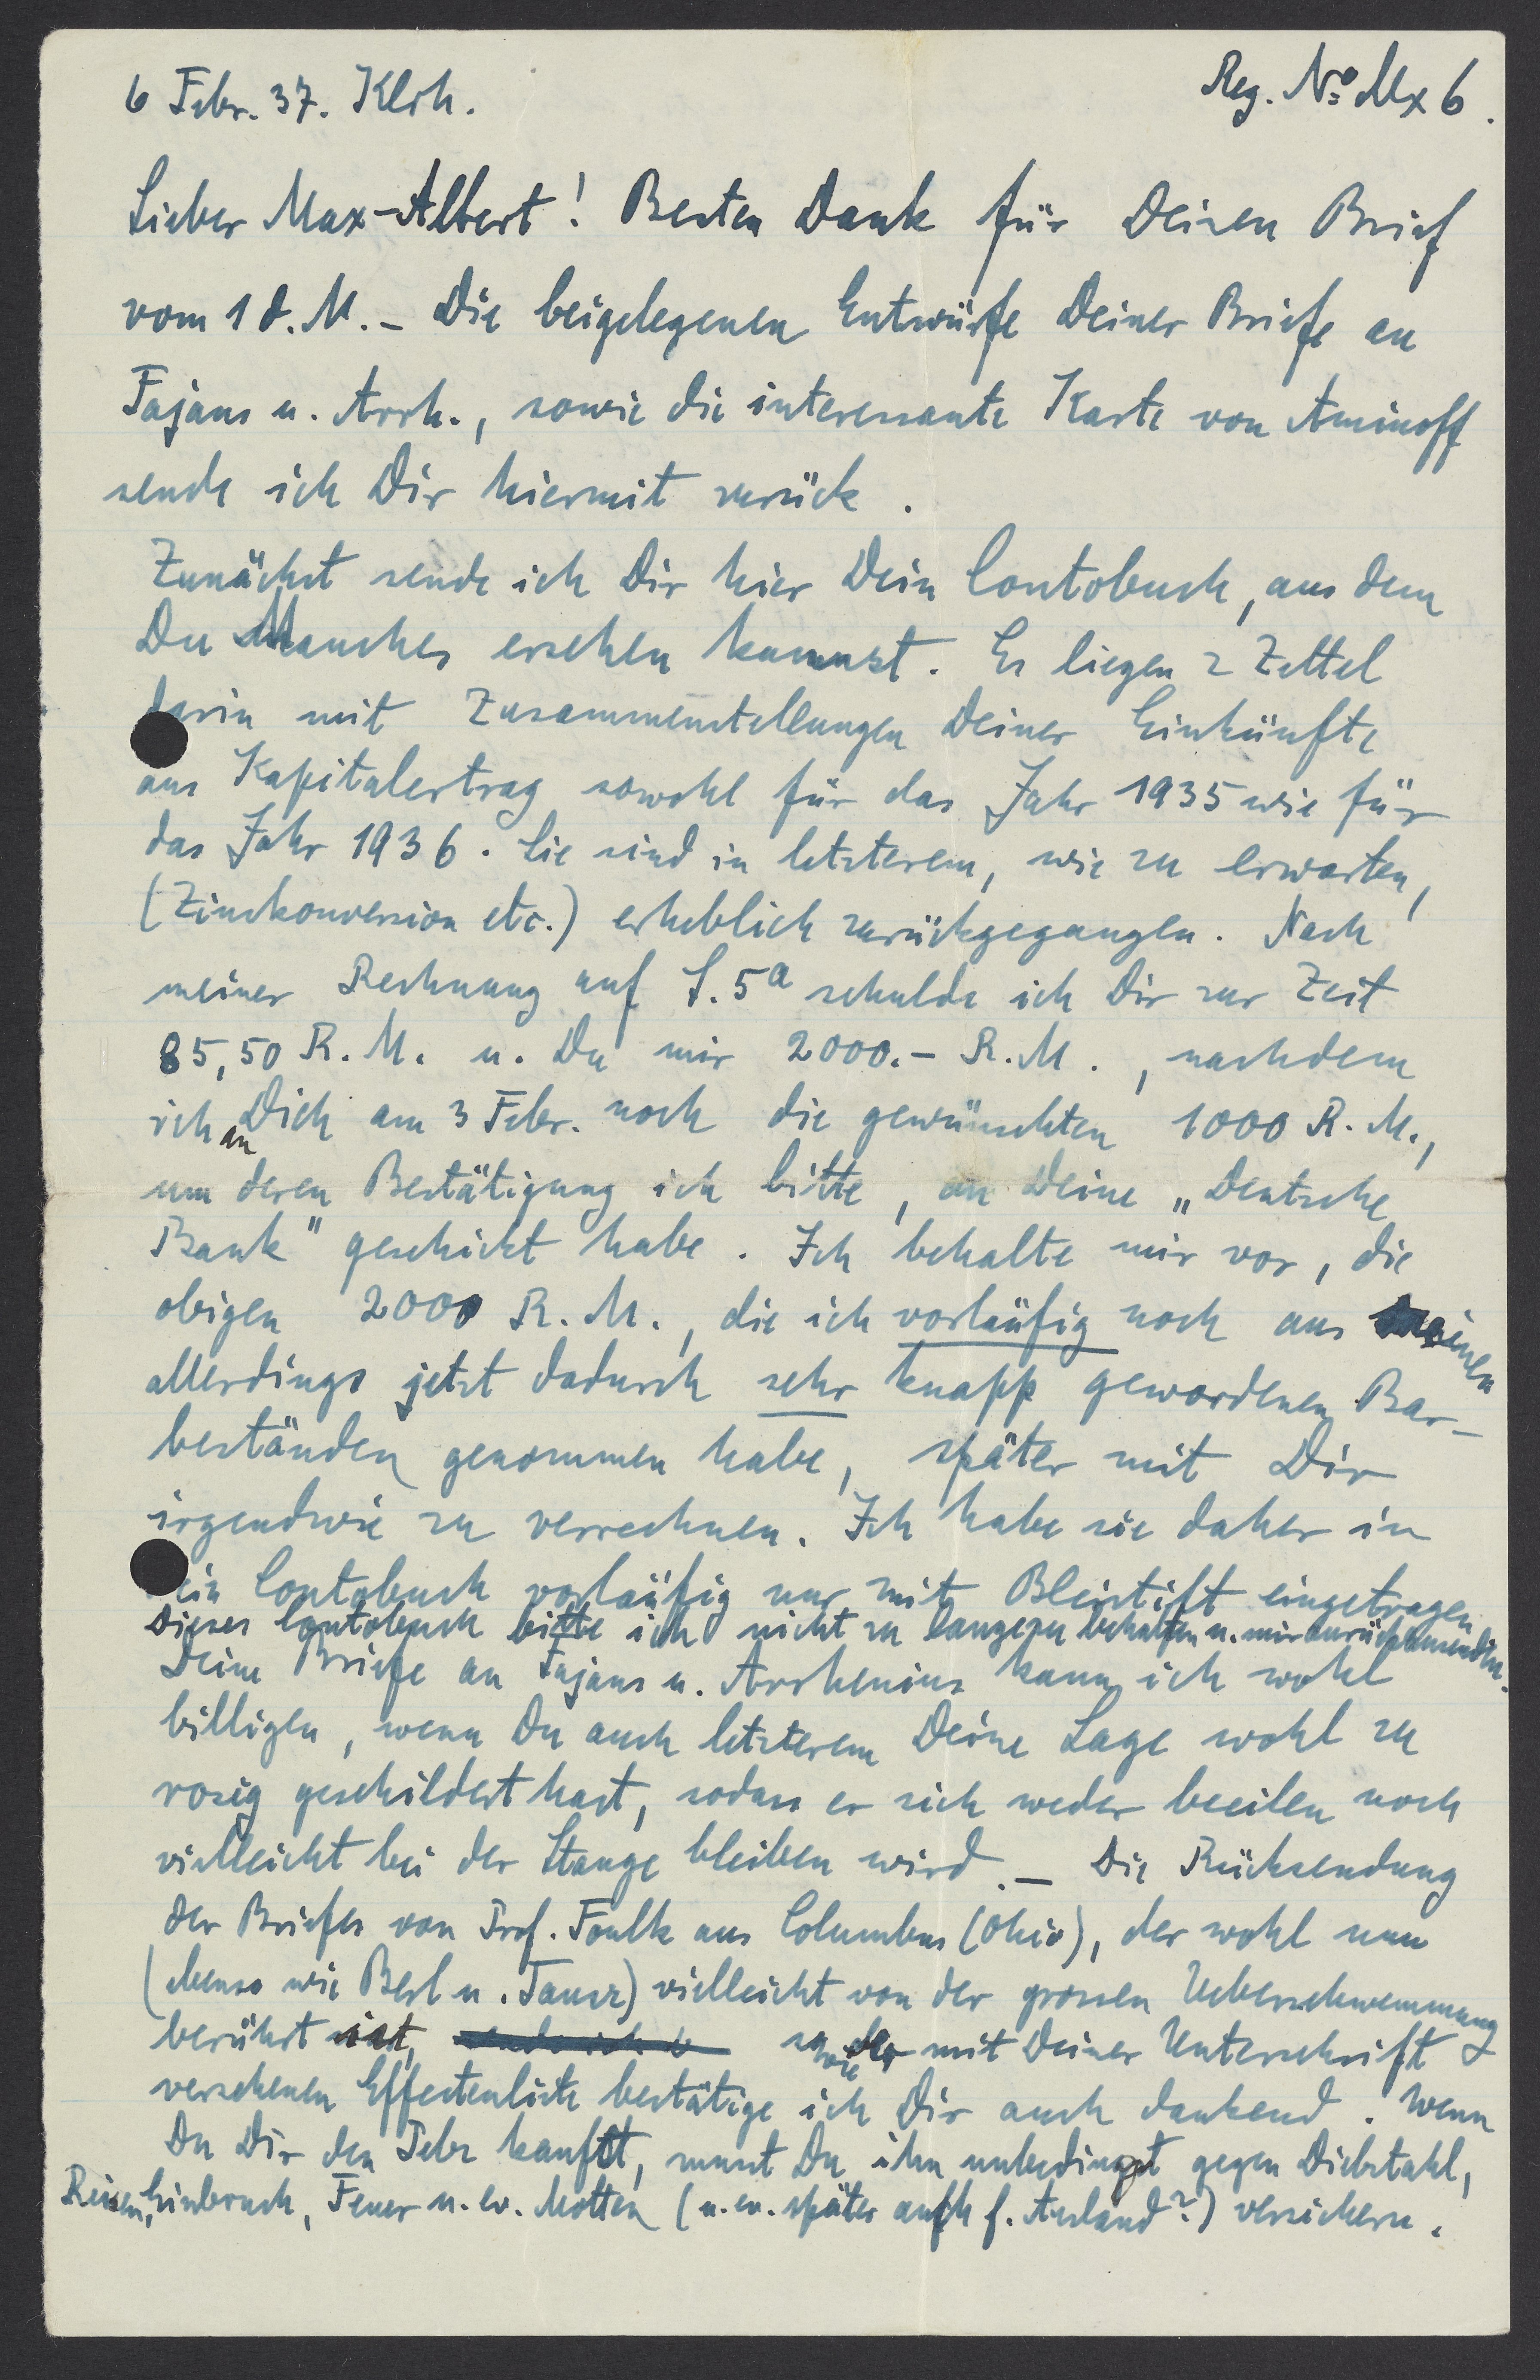 6 Febr. 37. Klrh.
Reg. No Mx 6.
Lieber Max-Albert! Besten Dank für Deinen Brief
vom 1 d. M. - Die beigelegenen Entwürfe Deiner Briefe an
Fajans u. Arrh., sowie die interessante Karte von Aminoff
sende ich Dir hiermit zurück.
Zunächst sende ich Dir hier Dein Contobuch, aus dem
Du Manches ersehen kannst. Es liegen 2 Zettel
darin mit Zusammenstellungen Deiner Einkünfte
aus Kapitalertrag sowohl für das Jahr 1935 wie für
das Jahr 1936. Sie sind in letzterem, wie zu erwarten,
(Zinskonversion etc.) erheblich zurückgegangen. Nach
meiner Rechnung auf S. 5a schulde ich Dir zur Zeit
85,50 R. M. u. Du mir 2000.- R. M., nachdem
ich an Dich am 3 Febr. noch die gewünschten 1000 R. M.,
um deren Bestätigung ich bitte, an Deine „Deutsche
Bank" geschickt habe. Ich behalte mir vor, die
obigen 2000 R. M., die ich vorläufig noch aus meinen
allerdings jetzt dadurch sehr knapp gewordenen Bar-
beständen genommen habe, später mit Dir
irgendwie zu verrechnen. Ich habe sie daher in
Dein Contobuch vorläufig nur mit Bleistift eingetragen.
Dieses Contobuch bitte ich nicht zu lange zu behalten u. mir zurückzusenden.
Deine Briefe an Fajans u. Arrhenius kann ich wohl
billigen, wenn Du auch letzterem Deine Lage wohl zu
rosig geschildert hast, sodass er sich weder beeilen noch
vielleicht bei der Stange bleiben wird. - Die Rücksendung
des Briefes von Prof. Foulk aus Columbus (Ohio), der wohl nun
(ebenso wie Berl u. Tausz) vielleicht von der grossen Ueberschwemmung
berührt ist, sowie der mit Deiner Unterschrift
versehenen Effectenliste bestätige ich Dir auch dankend. Wenn
Du Dir den Pelz kaufst, musst Du ihn unbedingt gegen Diebstahl,
Reisen, Einbruch, Feuer u. ev. Motten (u. ev. später auch f. Ausland?) versichern.